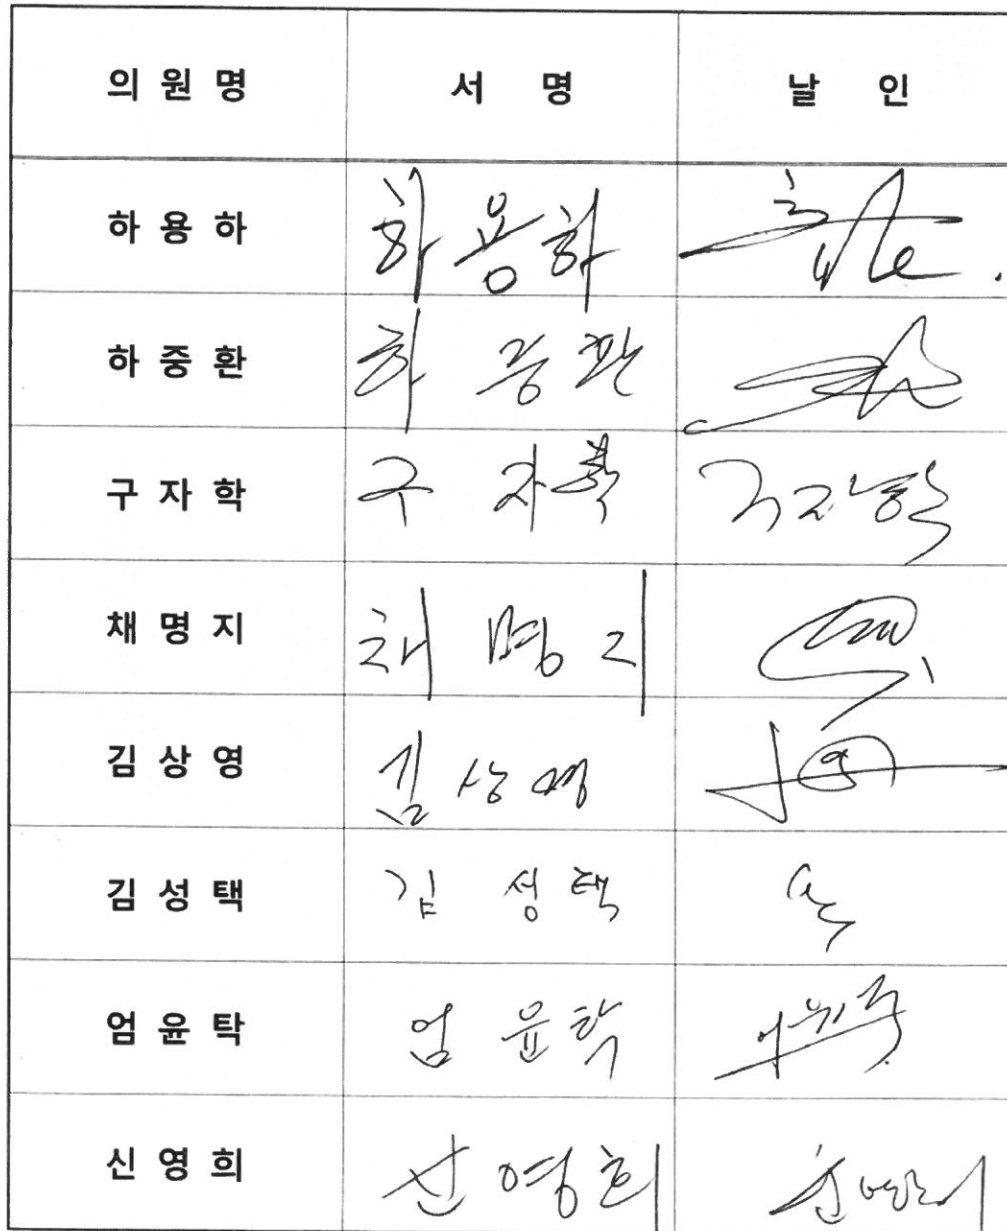 의원명 서명 날인
하용하 하용하
하중환 하중환
구자학 구자학 구자학
채명지 채명지
김상영 김상영
김성택 김성택
엄윤탁 엄윤탁
신영희 신영희